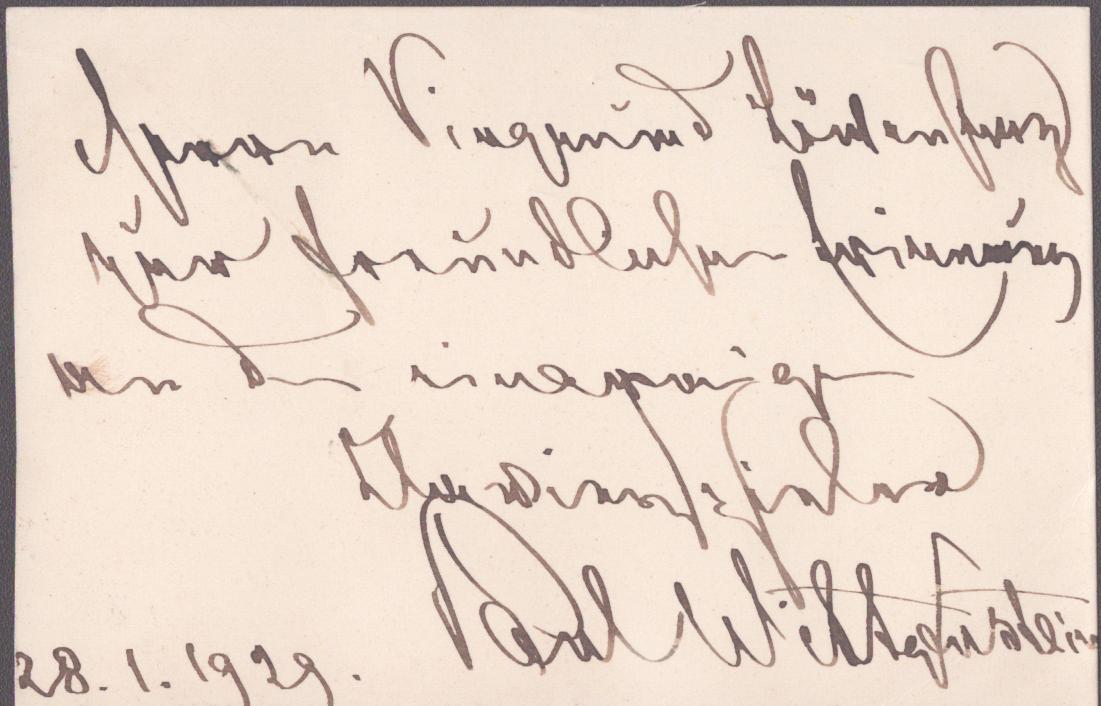 Herrn Siegmund
zur freundlichen Erinnerung
an den einarmigen
Klavierspieler
Paul Wittgenstein
28.1.1929.